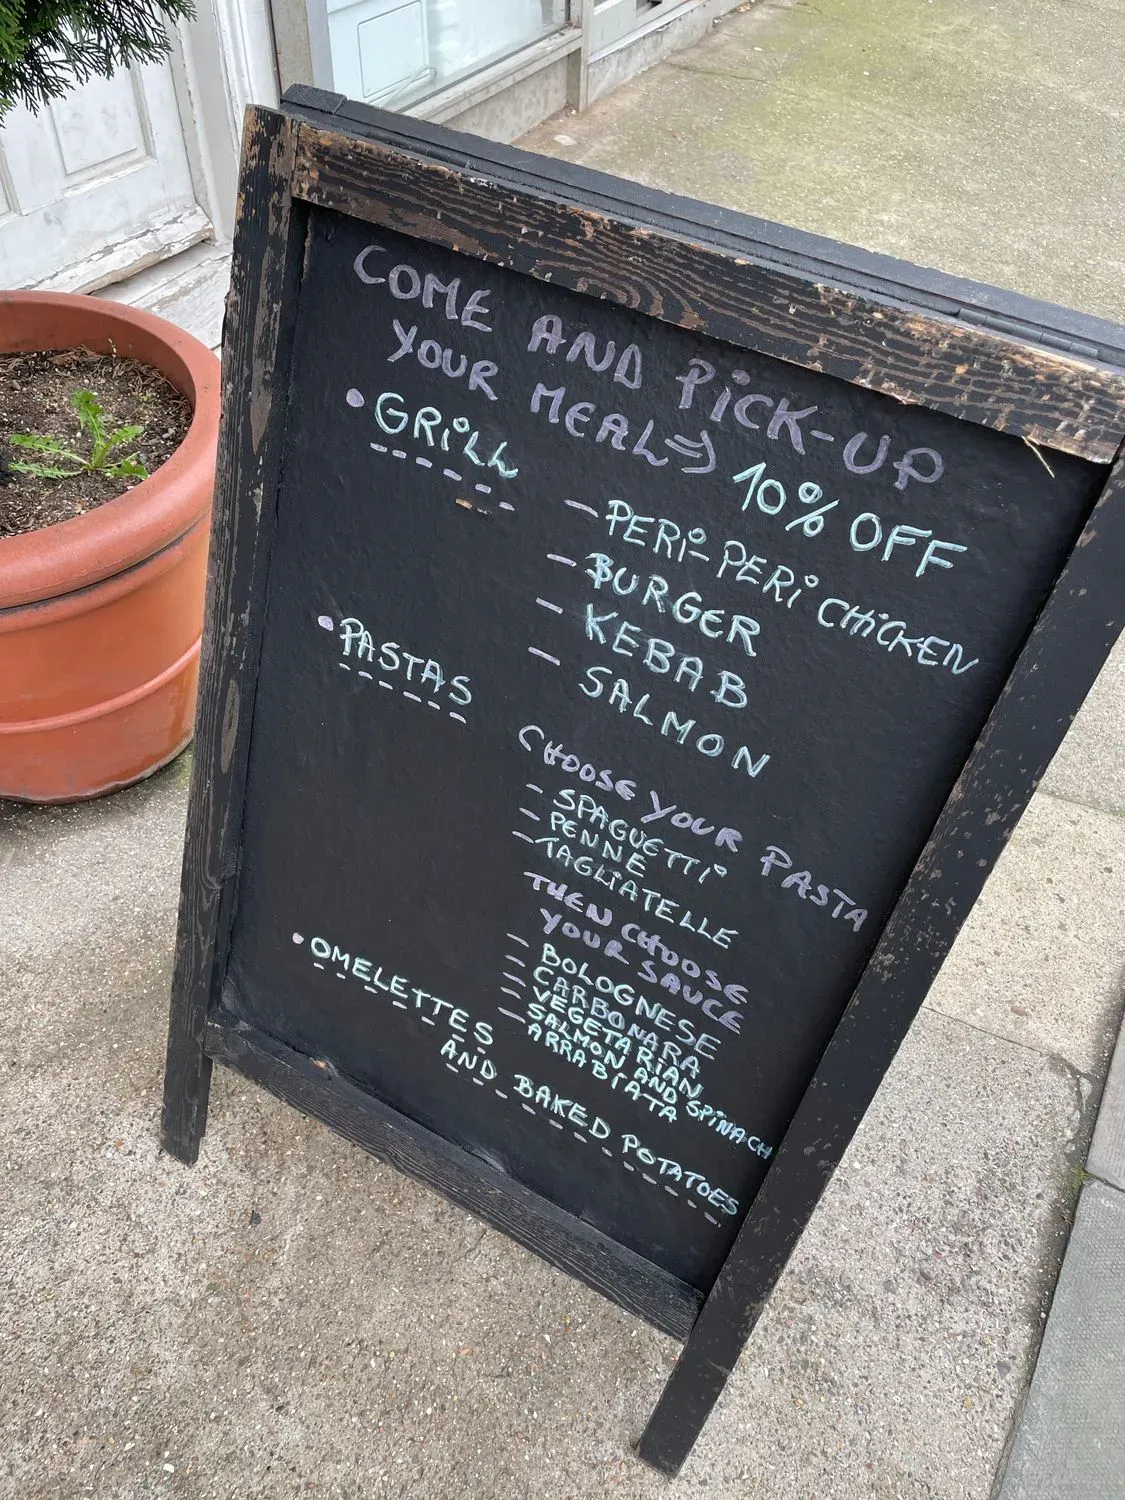 COME AND PICK-UP
YOUR MEAL => 10% OFF
• GRILL
- PERI-PERI CHICKEN
- BURGER
- KEBAB
- SALMON
• PASTAS
CHOOSE YOUR PASTA
- SPAGUETTI
- PENNE
- TAGLIATELLE
THEN CHOOSE
YOUR SAUCE
- BOLOGNESE
- CARBONARA
- VEGETARIAN
- SALMON AND SPINACH
- ARRABIATA
• OMELETTES
AND BAKED POTATOES